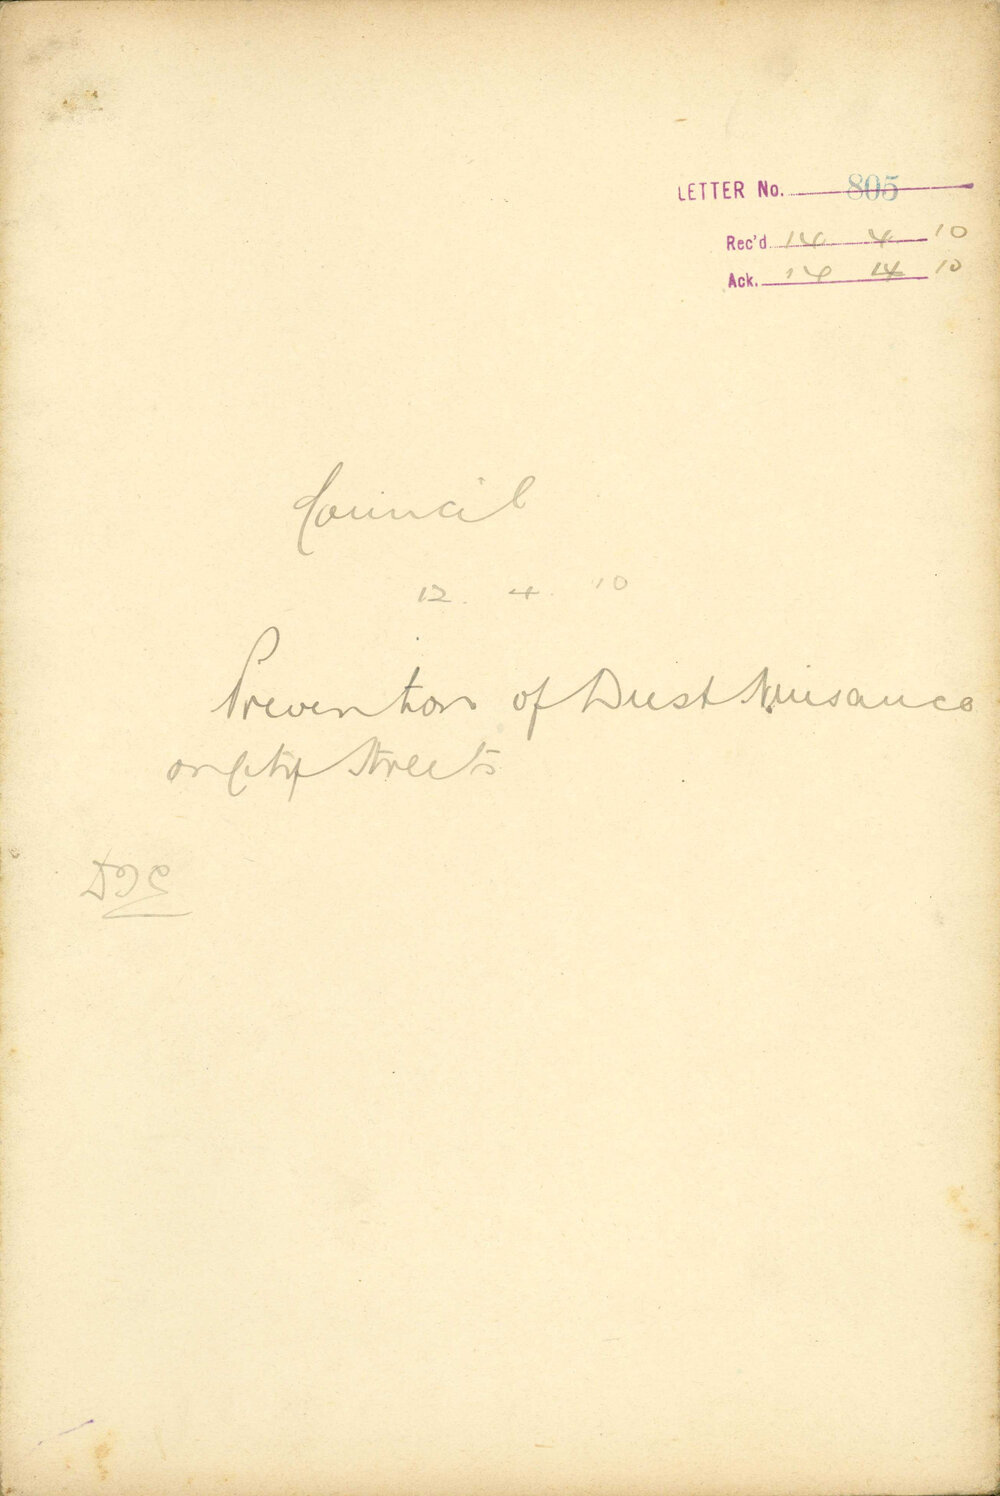 LETTER No. 805
Rec'd 14 4 10
Ack. 14 4 10
Council
12. 4. 10
Prevention of Dust Nuisance
on City Streets